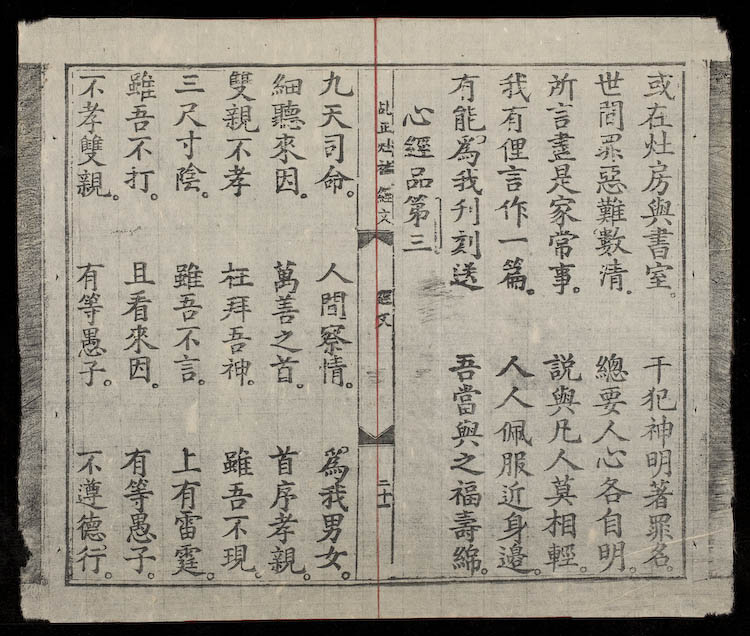 或在灶房與書室。 干犯神明著罪名。
世間罪惡難數清。 總要人心各自明。
所言盡是家常事。 說與凡人莫相輕。
我有俚言作一篇。 人人佩服近身邊。
有能爲我刋刻送 吾當與之福壽綿。
心經品第三
經文
經文
二十一
九天司命。 人間察情。 爲我男女。
細聽來因。 萬善之首。 首序孝親。
雙親不孝 枉拜吾神。 雖吾不現。
三尺寸陰。 雖吾不言。 上有雷霆。
雖吾不打。 且看來因。 有等愚子。
不孝雙親。 有等愚子。 不遵德行。